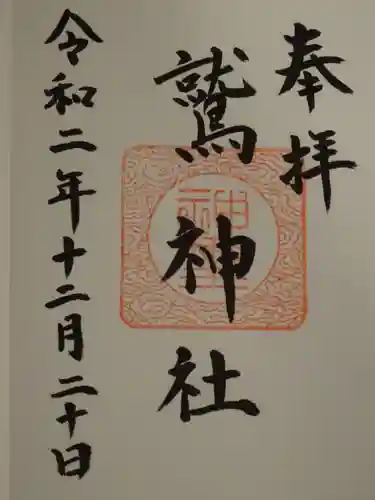 奉拝
鷲神社
令和二年十二月二十日